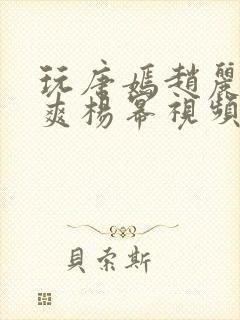 玩唐嫣趙麗
爽楊冪視頻
貝索斯